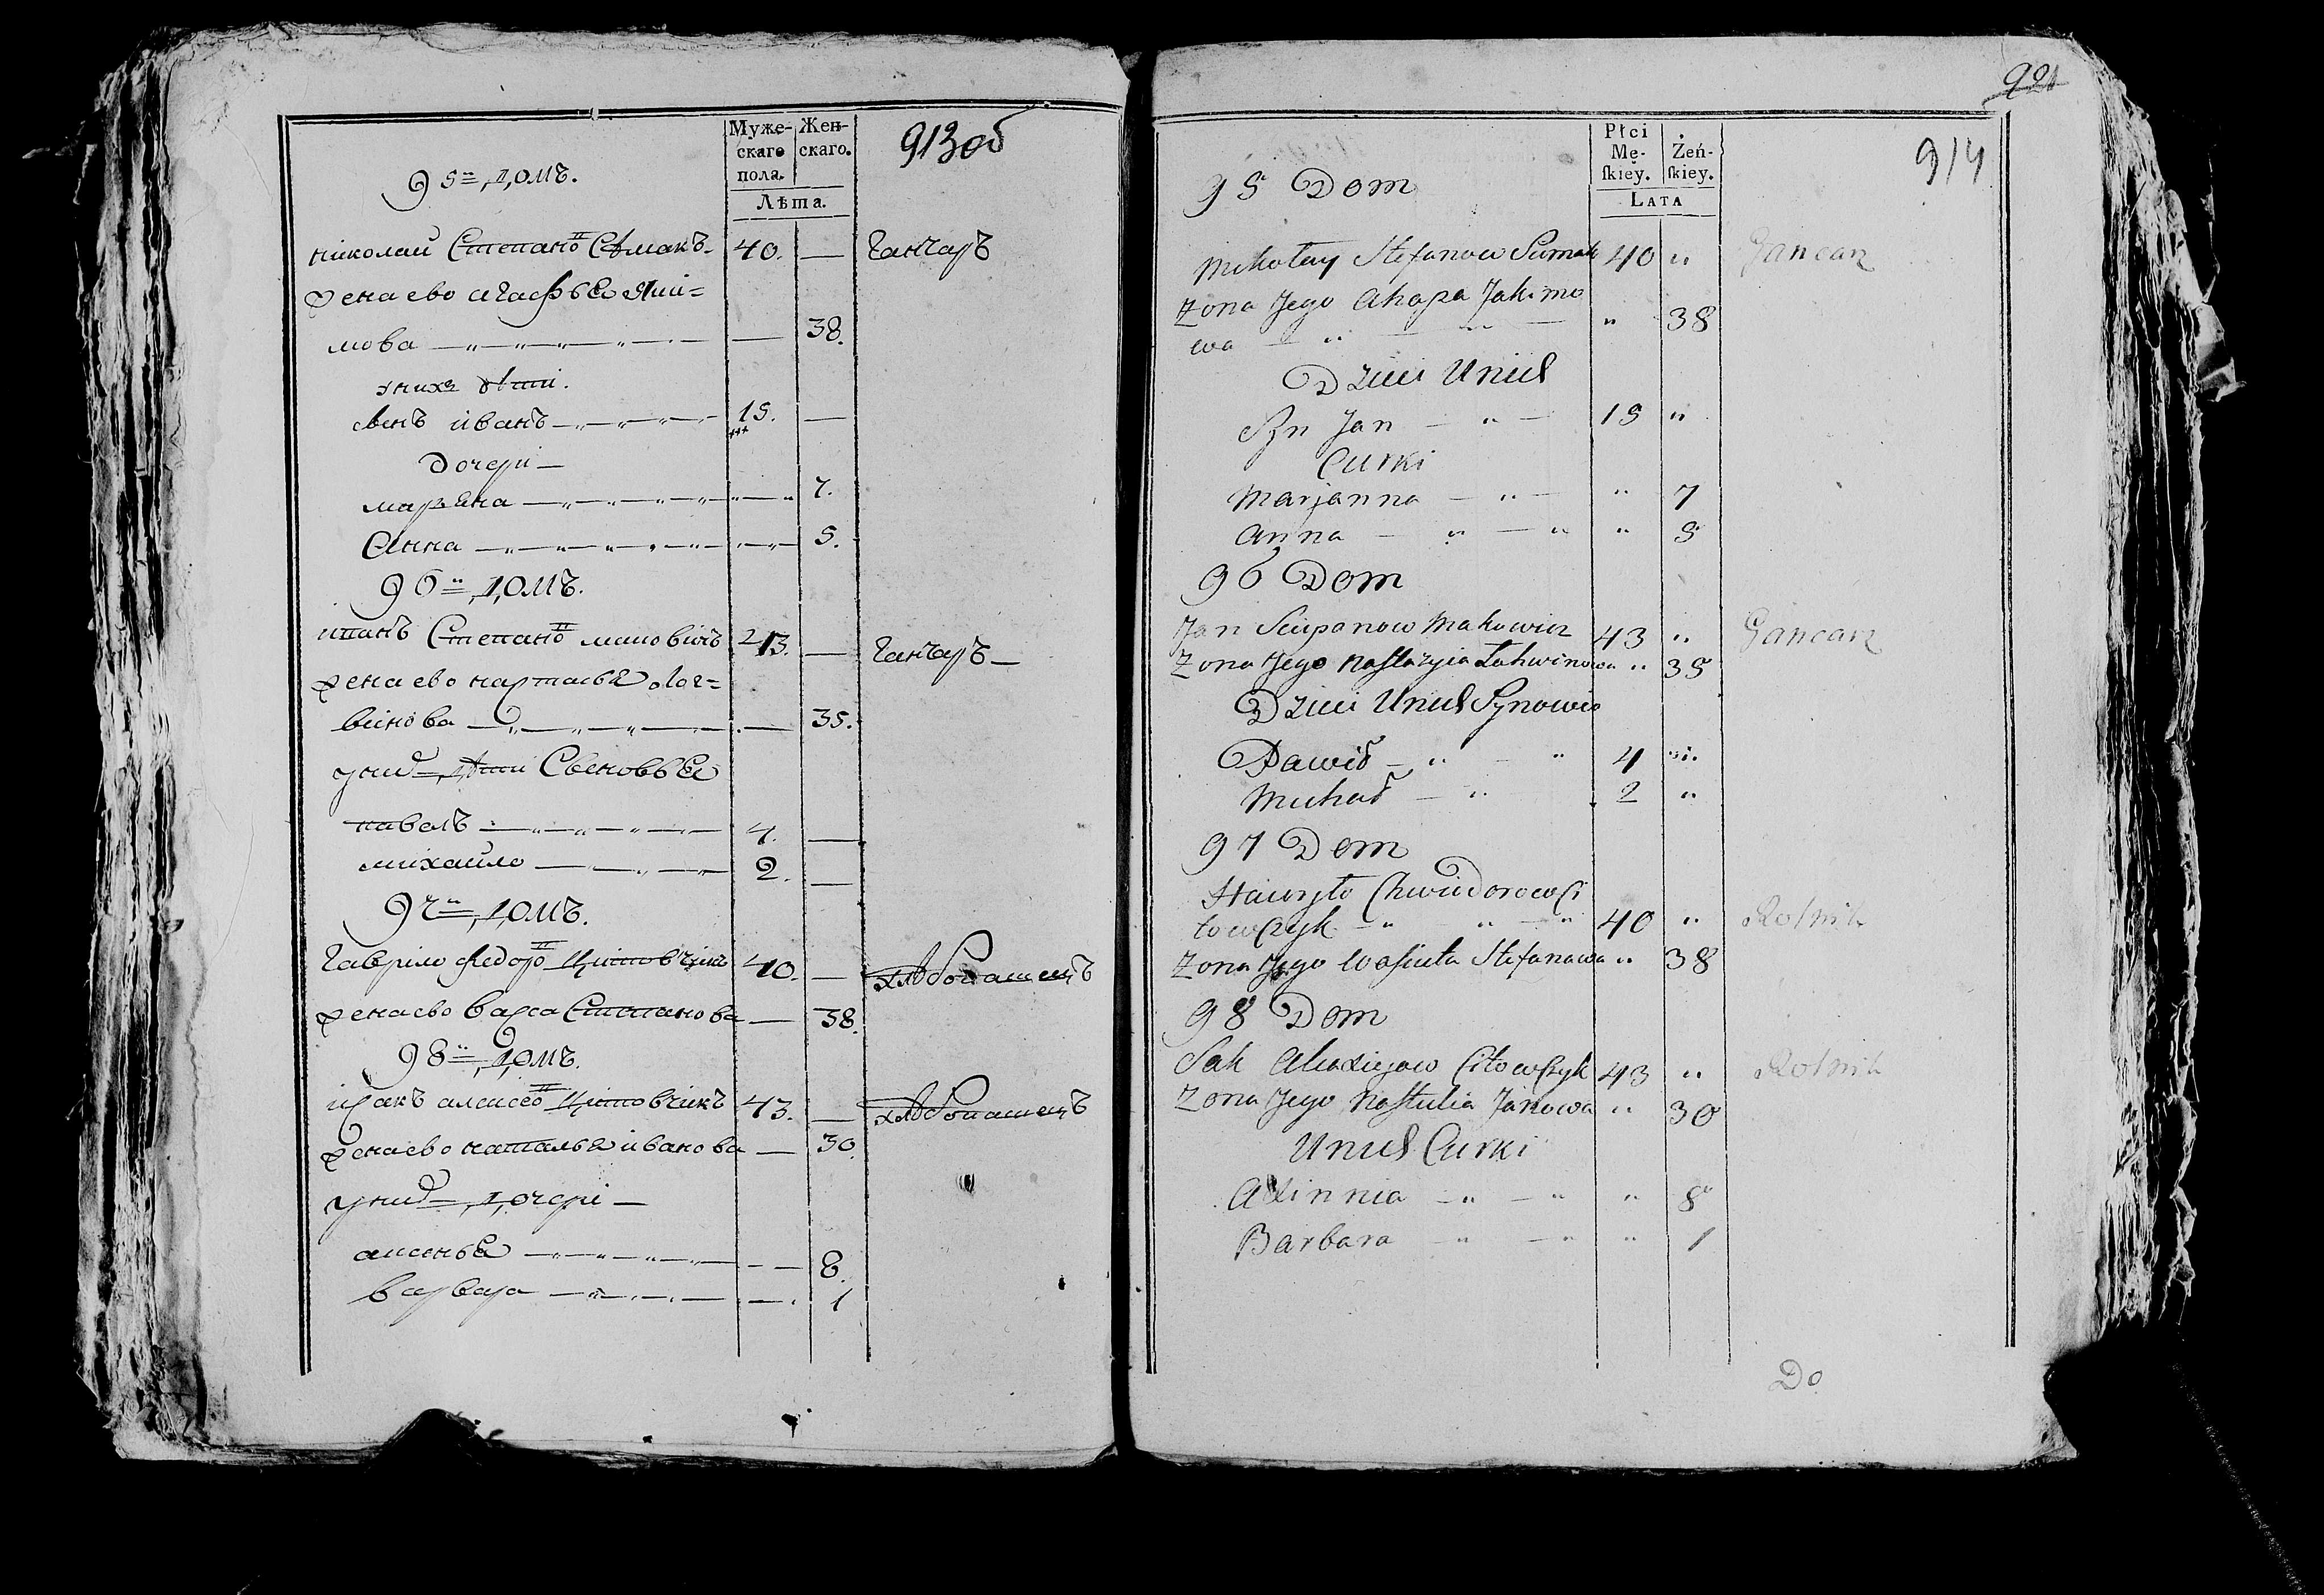 913об
Муже-
скаго
пола.
Жен-
скаго.
Лѣта.
95 домъ.
николай Степано Сѣмакъ 40. — ганчаръ
жена ево агафья Яки=
мова — 38.
у них дети.
сынъ иванъ 15. —
дочери —
марьяна 7.
Анна 5.
96 домъ.
иванъ Степано маковичъ 43. — ганчаръ —
жена ево настасья лог=
винова — 35.
у них дети Сыновья
павалъ 4. —
михайло 2. —
97 домъ.
гаврило Федоро Цитовчикъ 40. — хлѣбопашецъ
жена ево васса Степанова — 38.
98 домъ.
исакъ алексео Цитовчикъ 43. — хлѣбопашецъ
жена ево наталья иванова — 30.
у них дочери —
аксенья 8.
варвара 1
921
914
Płci
Mę-
ſkiey.
Żeń-
ſkiey.
LATA
95 Dom
Mikołay Stefanow Sumak 40 " Gancarz
Zona Jego Ahapa Jakimo
wa " 38
Dzieci Unich
Syn Jan 15 "
Curki
Marjanna " 7
Anna " 5
96 Dom
Jan Sciepanow Makowicz 43 " Gancarz
Zona Jego Nastazyia Łahwinowa " 35
Dzieci Unich Synowie
Dawid 4 "
Michał 2 "
97 Dom
Hawryło Chwiedorow Ci
towczyk 40 " Rolnik
Zona Jego Wasiuta Stefanowa " 38
98 Dom
Sak Alexiejow Citowczyk 43 " Rolnik
Zona Jego Nastulia Janowa " 30
Unich Curki
Axinnia " 8
Barbara " 1
Do